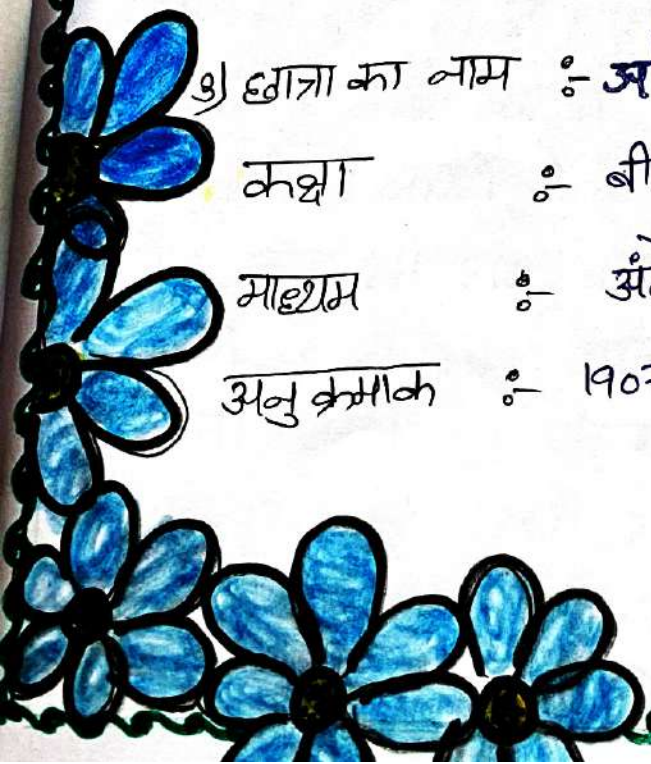 ३) छात्रा का नाम :- अ
कक्षा :- बी
माध्यम :- अं
अनु क्रमाक :- 190